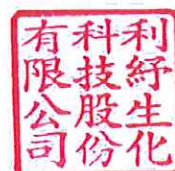 利紓生化
科技股份
有限公司